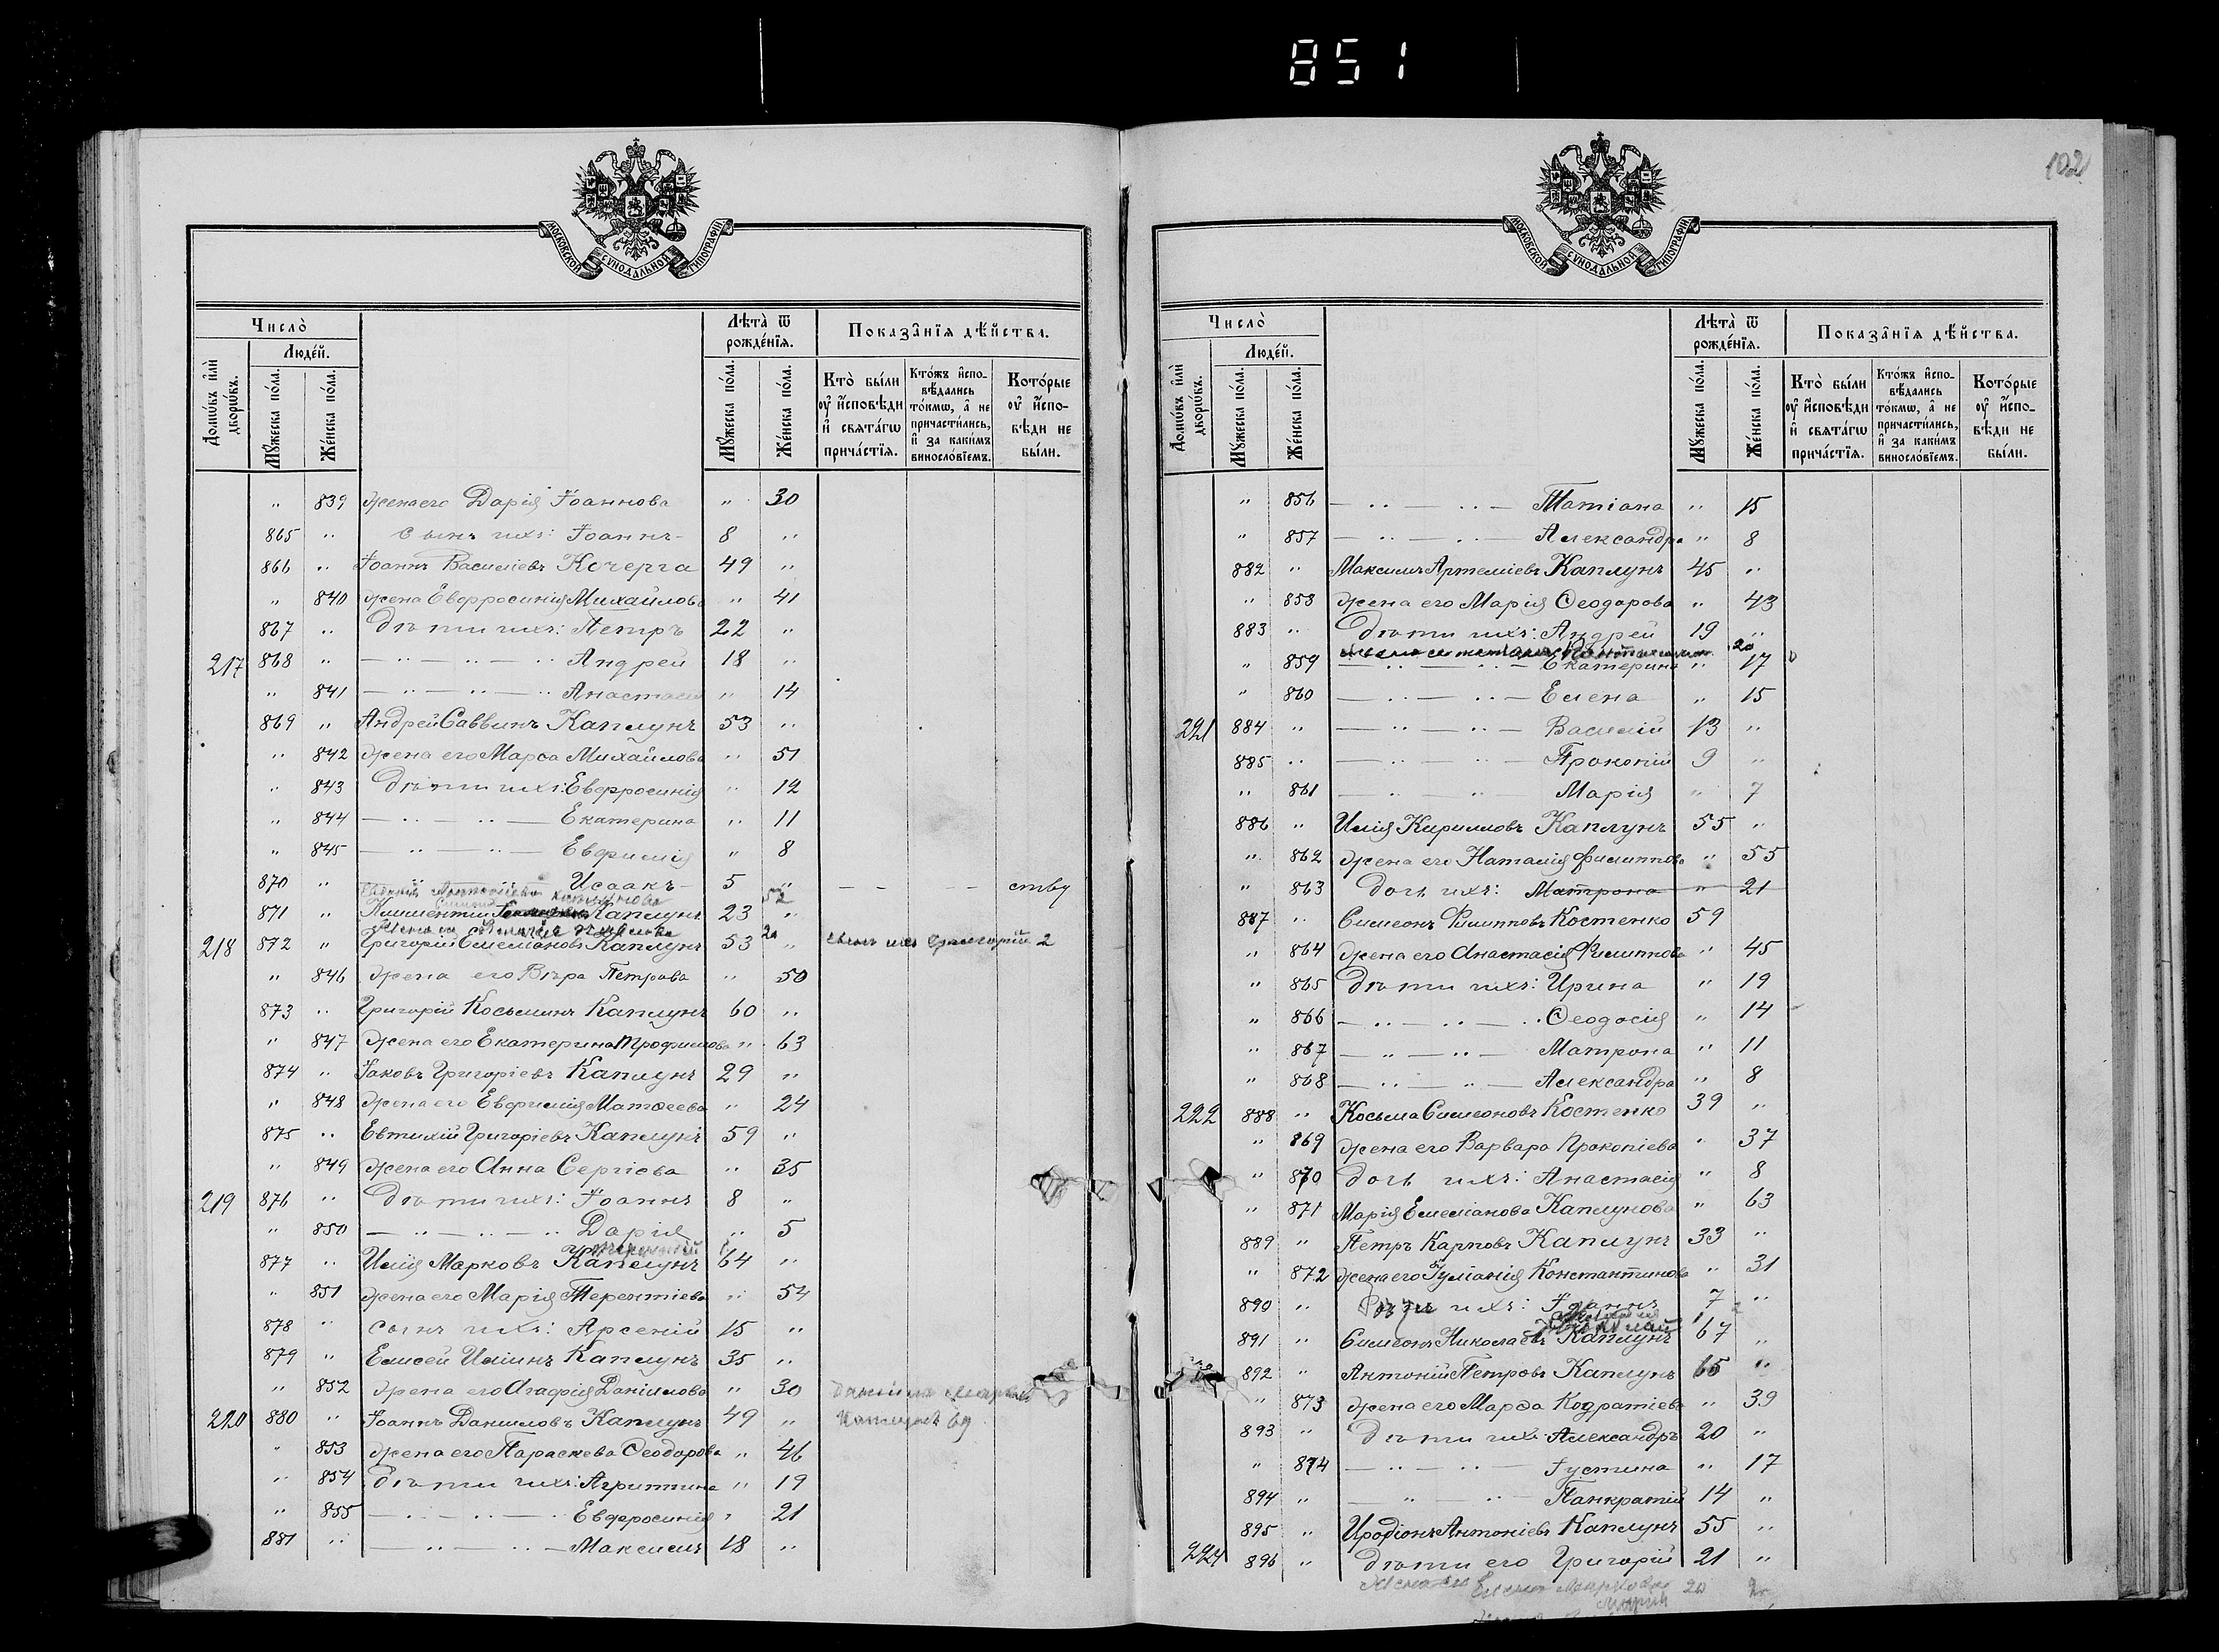 851
102
МОСКОВСКОЙ СУНОДАЛЬНОЙ ТИПОГРАФІИ.
Число̀
Людей.
Домѡвъ и҆лѝ дворѡвъ.
Мꙋжеска по́ла.
Же́нска по́ла.
Лѣта̀ ѿ рожде́нїѧ.
Мꙋжеска по́ла.
Же́нска по́ла.
Показа̑нїѧ дѣ́йства.
Кто̀ бы́ли ᲂу҆ и҆сповѣди и҆ свѧта́гѡ прича́стїѧ.
Кто́жъ и҆спо-вѣдались то́кмѡ, а҆ не причасти́лись, и҆ за каки́мъ винословїемъ.
Кото́рые ᲂу҆ и҆спо-вѣди не бы́ли.
" 839 жена его Дарія Іоаннова " 30
865 " сынъ ихъ: Іоаннъ 8 "
866 " Іоаннъ Василіевъ Кочерга 49 "
" 840 жена Евфросинія Михайлова " 41
867 " дѣти ихъ: Петръ 22 "
217 868 " — " — " — " Андрей 18 "
" 841 — " — " — " Анастасія " 14
869 " Андрей Саввинъ Каплунъ 53 "
" 842 жена его Марѳа Михайлова " 51
" 843 Дѣти ихъ: Евфросинія " 12
" 844 — " — " — Екатерина " 11
" 845 — " — " — Евфимія " 8
870 " — " — " Исаакъ 5 " - - - ству
Каплунова 52
871 " Климентій Каплунъ 23 "
Жена его 20
218 872 " Григорій Емеліановъ Каплунъ 53 " сынъ ихъ Григорій 2
" 846 жена его Вѣра Петрова " 50
873 " Григорій Косьминъ Каплунъ 60 "
" 847 жена его Екатерина Трофимова " 63
874 " Іаковъ Григоріевъ Каплунъ 29 "
" 848 жена его Евфимія Матѳеева " 24
875 " Евтихій Григоріевъ Каплунъ 59 "
" 849 жена его Анна Сергіева " 35
219 876 " дѣти ихъ: Іоаннъ 8 "
" 850 — " — " — " Дарія " 5
877 " Илія Марковъ Каплунъ 64 "
" 851 жена его Марія Терентіева " 54
878 " сынъ ихъ: Арсеній 15 "
879 " Елисей Иліинъ Каплунъ 35 "
" 852 жена его Агафія Даніилова " 30
220 880 " Іоаннъ Даниловъ Каплунъ 49 " Каплунъ 69
" 853 жена его Параскева Ѳеодорова " 46
" 854 Дѣти ихъ: Агриппина " 19
" 855 — " — " — " Евфросинія " 21
881 " — " — " — Максимъ 18 "
МОСКОВСКОЙ СУНОДАЛЬНОЙ ТИПОГРАФІИ.
Число̀
Людей.
Домѡвъ и҆лѝ дворѡвъ.
Мꙋжеска по́ла.
Же́нска по́ла.
Лѣта̀ ѿ рожде́нїѧ.
Мꙋжеска по́ла.
Же́нска по́ла.
Показа̑нїѧ дѣ́йства.
Кто̀ бы́ли ᲂу҆ и҆сповѣди и҆ свѧта́гѡ прича́стїѧ.
Кто́жъ и҆спо-вѣдались то́кмѡ, а҆ не причасти́лись, и҆ за каки́мъ винословїемъ.
Кото́рые ᲂу҆ и҆спо-вѣди не бы́ли.
" 856 — " — " — Татіана " 15
" 857 — " — " — Александра " 8
882 " Максимъ Артеміевъ Каплунъ 45 "
" 858 жена его Марія Ѳеодорова " 43
883 " Дѣти ихъ: Андрей 19 "
20
" 859 — " — " — Екатерина " 17
" 860 — " — " — Елена " 15
221 884 " — " — " — Василій 13 "
885 " — " — " — Прокопій 9 "
" 861 — " — " Марія " 7
886 " Илія Кирилловъ Каплунъ 55 "
" 862 жена его Наталія Филиппова " 55
" 863 дочь ихъ: Матрона " 21
887 " Симеонъ Филипповъ Костенко 59
" 864 жена его Анастасія Филиппова " 45
" 865 Дѣти ихъ: Ирина " 19
" 866 — " — " — " Ѳеодосія " 14
" 867 — " — " — Матрона " 11
" 868 — " — " — Александра " 8
222 888 " Косьма Симеоновъ Костенко 39 "
" 869 жена его Варвара Прокопіева " 37
" 870 дочь ихъ: Анастасія " 8
" 871 Марія Емеліанова Каплунова " 63
889 " Петръ Карповъ Каплунъ 33 "
" 872 жена его Іуліанія Константинова " 31
890 " ихъ: Іоаннъ 7 "
891 " Симеонъ Николаевъ Каплунъ 67 "
892 " Антоній Петровъ Каплунъ 65 "
" 873 жена его Марѳа Кодратіева " 39
893 " Дѣти ихъ: Александръ 20 "
" 874 — " — " — Іустина " 17
894 " — " — " — Панкратій 14 "
895 " Иродіонъ Антоніевъ Каплунъ 55 "
224 896 " дѣти его Григорій 21 "
Жена его Маркова 20
Марія